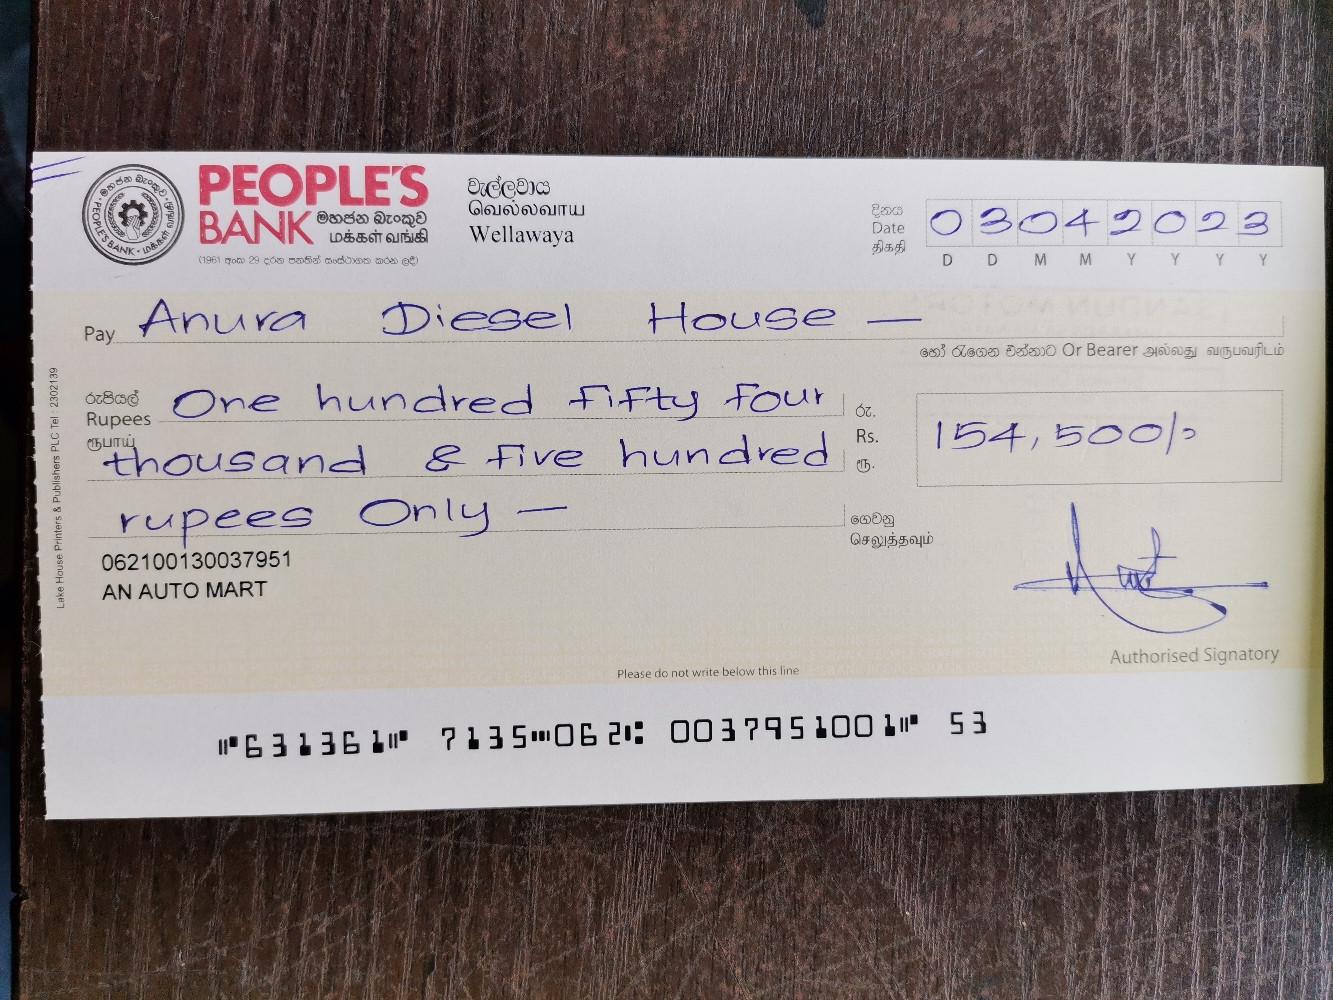 PEOPLE'S
BANK මහජන බැංකුව
மக்கள் வங்கி
(1961 අංක 29 දරන පනතින් සංස්ථාගත කරන ලදී)
මහජන බැංකුව
PEOPLE'S BANK • மக்கள் வங்கி
වැල්ලවාය
வெல்லவாய
Wellawaya
දිනය
Date
திகதி
0 3 0 4 2 0 2 3
D D M M Y Y Y Y
Pay Anura Diesel House —
හෝ රැගෙන එන්නාට Or Bearer அல்லது வருபவரிடம்
රුපියල්
Rupees
ரூபாய்
One hundred fifty four
thousand & five hundred
rupees Only —
රු.
Rs.
ரூ.
154,500/-
ගෙවනු
செலுத்தவும்
062100130037951
AN AUTO MART
Authorised Signatory
Please do not write below this line
Lake House Printers & Publishers PLC Tel : 2302139
⑈631361⑈ 7135⑉062⑆ 0037951001⑈ 53